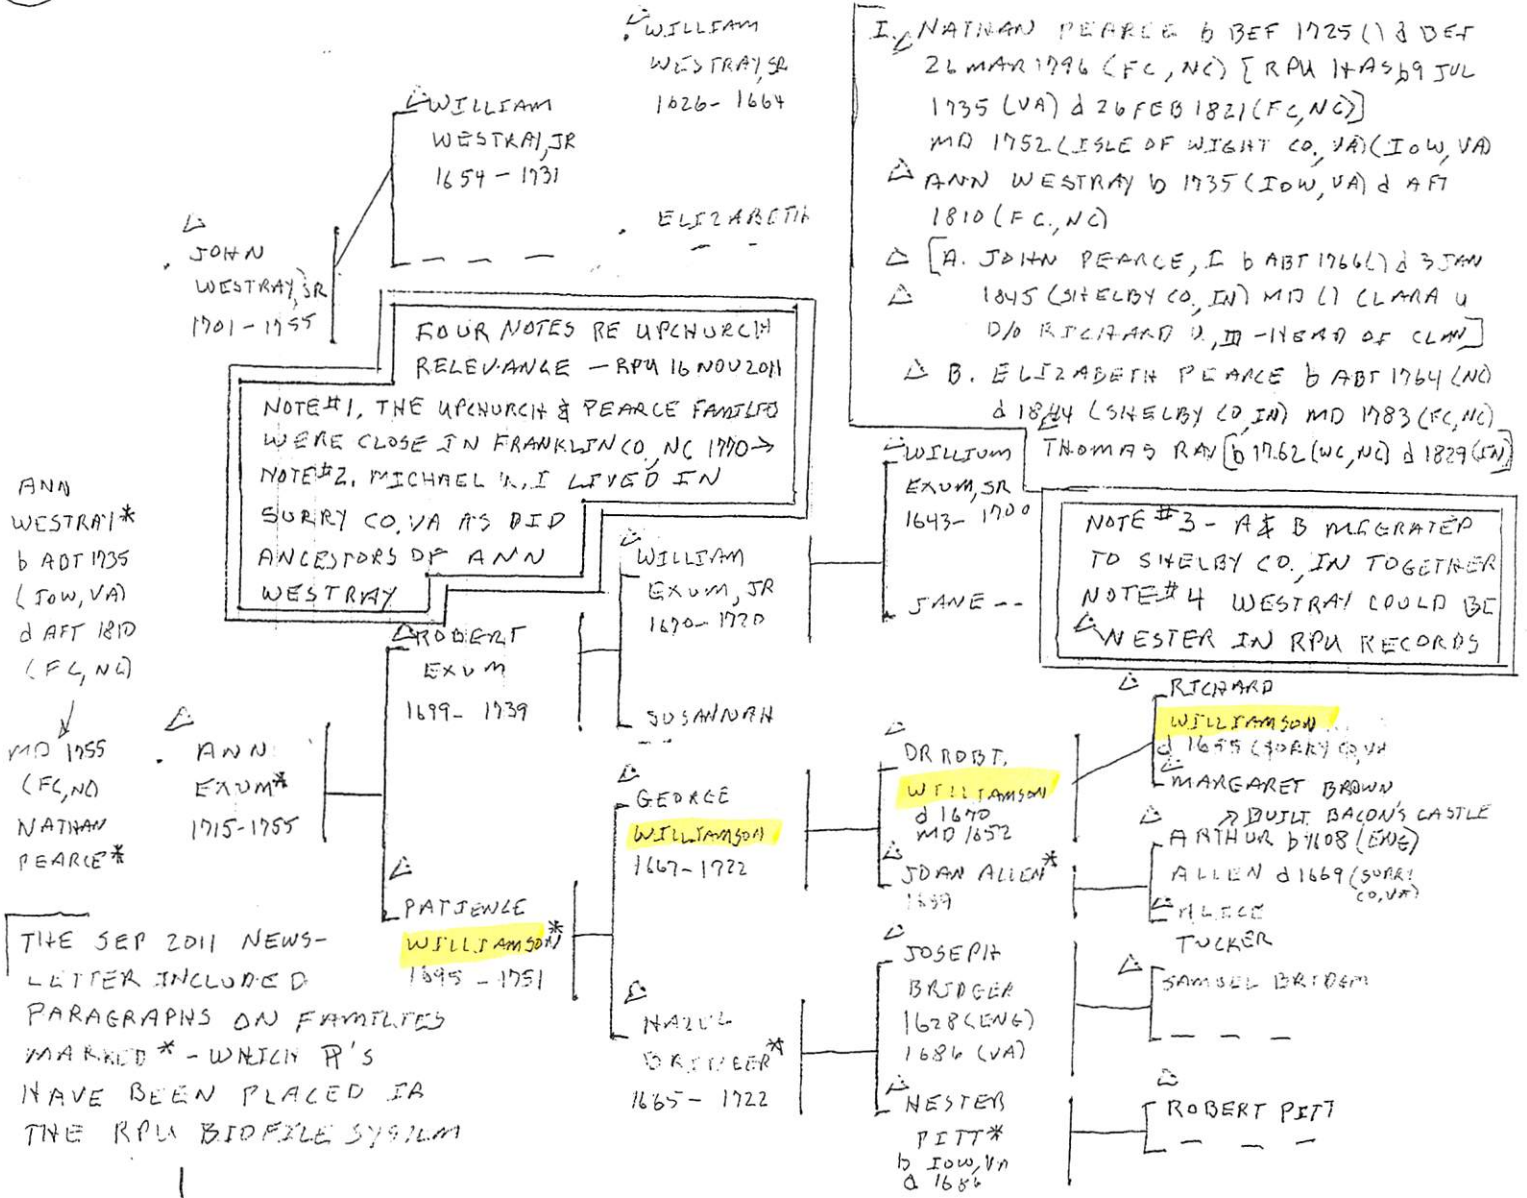 WILLIAM
WESTRAY, SR
1626-1664
WILLIAM
WESTRAY, JR
1654-1731
ELIZABETH
JOHN
WESTRAY, JR
1701-1755
I. NATHAN PEARCE b BEF 1725 () d BEF
26 MAR 1796 (FC, NC) [RPU HAS b 9 JUL
1735 (VA) d 26 FEB 1821 (FC, NC)]
MD 1752 (ISLE OF WIGHT CO., VA) (IOW, VA)
ANN WESTRAY b 1735 (IOW, VA) d AFT
1810 (FC., NC)
[A. JOHN PEARCE, I b ABT 1766 () d 3 JAN
1845 (SHELBY CO, IN) MD () CLARA U
D/O RICHARD U, III - HEAD OF CLAN]
B. ELIZABETH PEARCE b ABT 1764 (NC)
d 1844 (SHELBY CO, IN) MD 1783 (FC, NC)
THOMAS RAY [b 1762 (WC, NC) d 1829 (IN)]
FOUR NOTES RE UPCHURCH
RELEVANCE - RPU 16 NOV 2011
NOTE #1. THE UPCHURCH & PEARCE FAMILIES
WERE CLOSE IN FRANKLIN CO., NC 1770→
NOTE #2. MICHAEL U, I LIVED IN
SURRY CO. VA AS DID
ANCESTORS OF ANN
WESTRAY
NOTE #3 - A & B MIGRATED
TO SHELBY CO., IN TOGETHER
NOTE #4 WESTRAY COULD BE
WESTER IN RPU RECORDS
ANN
WESTRAY*
b ABT 1735
(IOW, VA)
d AFT 1810
(FC, NC)
MD 1755
(FC, NC)
NATHAN
PEARCE*
ANN
EXUM*
1715-1755
ROBERT
EXUM
1699-1739
PATIENCE
WILLIAMSON*
1695-1751
WILLIAM
EXUM, JR
1670-1720
SUSANNAH
--
WILLIUM
EXUM, SR
1643-1700
JANE --
GEORGE
WILLIAMSON
1667-1722
HAZUL
BRIDGER*
1665-1722
DR ROBT.
WILLIAMSON
d 1670
MD 1652
JOAN ALLEN*
JOSEPH
BRIDGER
1628 (ENG)
1686 (VA)
HESTER
PITT*
b IOW, VA
d 1686
RICHARD
WILLIAMSON
d 1655 (SURRY CO, VA
MARGARET BROWN
↗ BUILT BACON'S CASTLE
ARTHUR b 1608 (ENG)
ALLEN d 1669 (SURRY
CO, VA)
ALICE
TUCKER
SAMUEL BRIDGER
ROBERT PITT
THE SEP 2011 NEWS-
LETTER INCLUDED
PARAGRAPHS ON FAMILIES
MARKED * - WHICH P'S
HAVE BEEN PLACED IN
THE RPU BIOFILE SYSTEM